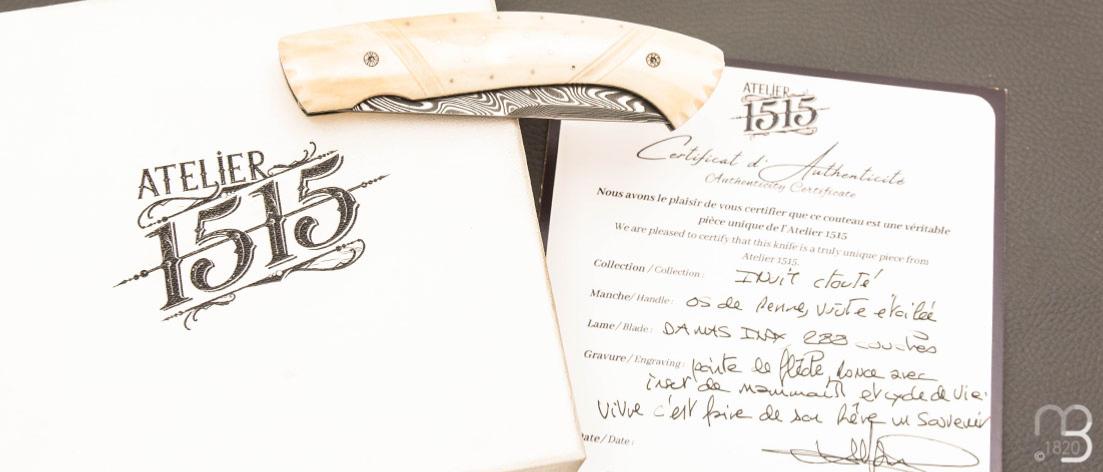 ATELIER
1515
ATELIER
1515
Certificat d'Authenticité
Authenticity Certificate
Nous avons le plaisir de vous certifier que ce couteau est une véritable
pièce unique de l'Atelier 1515
We are pleased to certify that this knife is a truly unique piece from
Atelier 1515.
Collection / Collection : INUIT clouté
Manche / Handle : os de renne, voûte étoilée
Lame / Blade : DAMAS INOX 288 couches
Gravure / Engraving : pointe de flèche, ronce avec
inset de mammouth et cycle de vie.
VIVVE c'est faire de son rêve un souvenir
Date / Date :
©1820